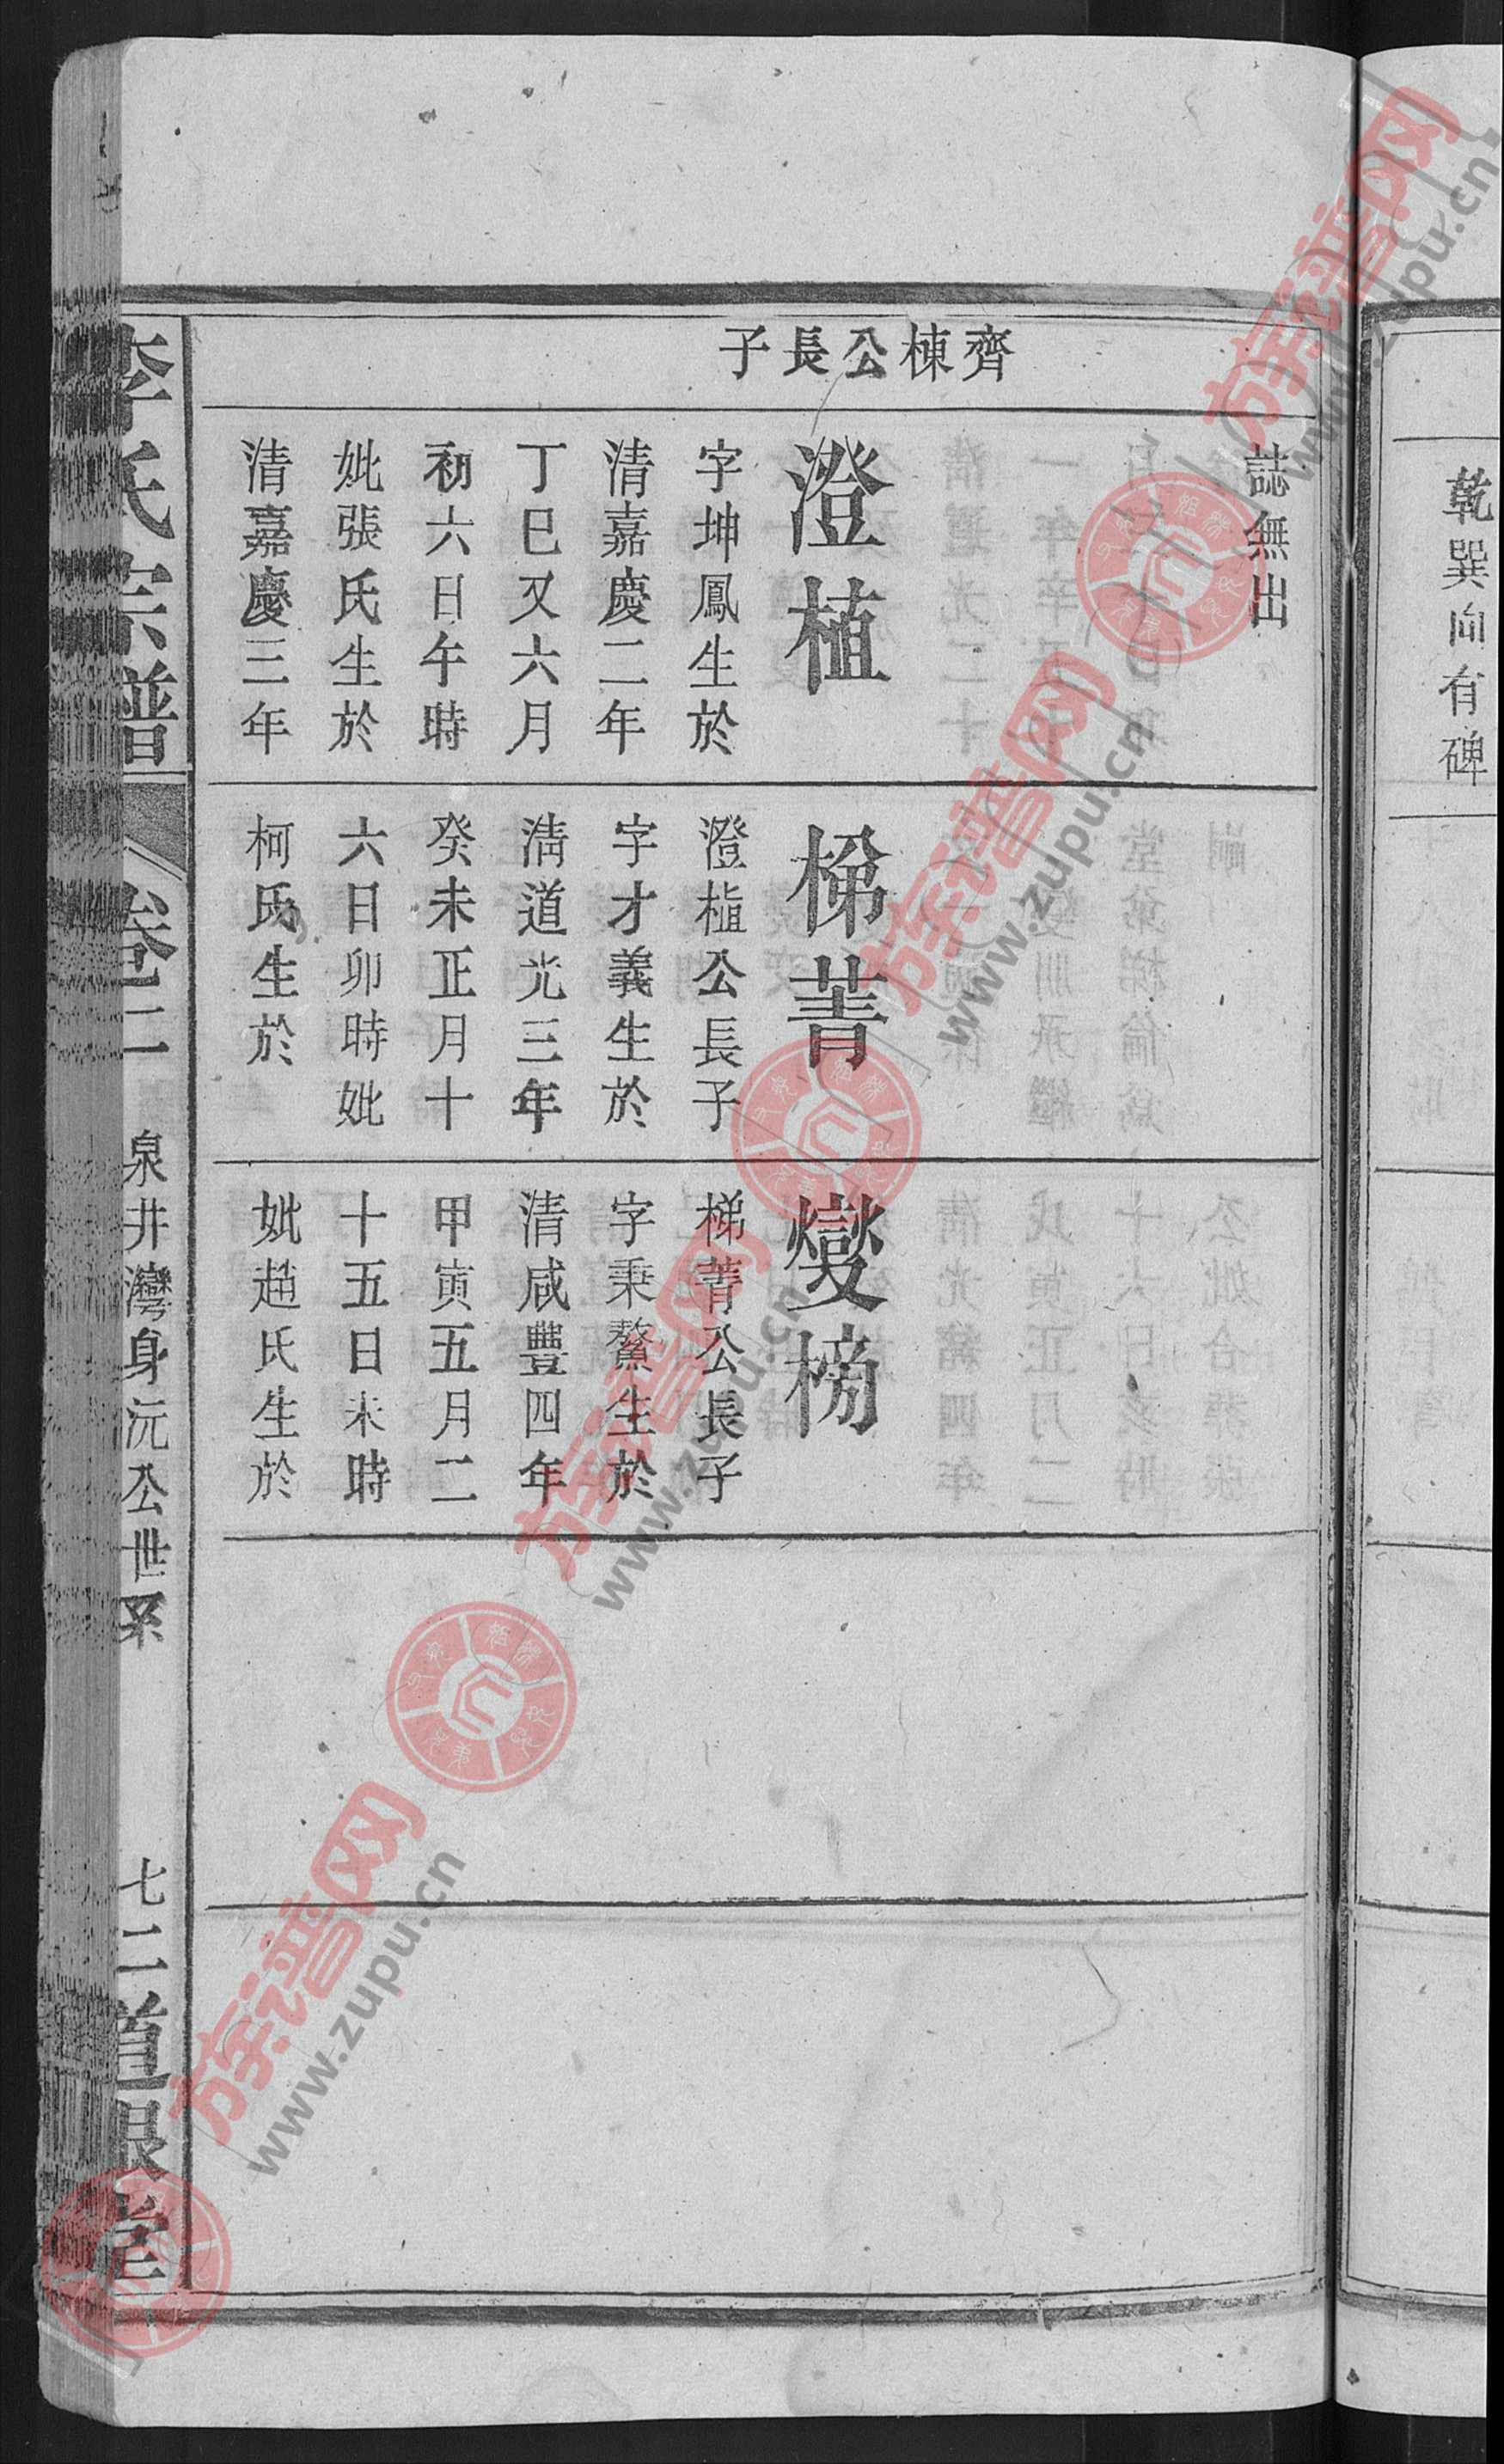 乾巽向有碑
齊棟公長子
誌無出
澄植
字坤鳳生於
清嘉慶二年
丁巳又六月
初六日午時
妣張氏生於
清嘉慶三年
梯菁
澄植公長子
字才義生於
淸道光三年
癸未正月十
六日卯時妣
柯氏生於
燮榜
梯菁公長子
字秉鰲生於
清咸豐四年
甲寅五月二
十五日未時
妣趙氏生於
李氏宗譜
卷二
泉井灣身沅公世系
七二
道根堂
族谱网
www.zupu.cn
族谱网
www.zupu.cn
族谱网
www.zupu.cn
族谱网
www.zupu.cn